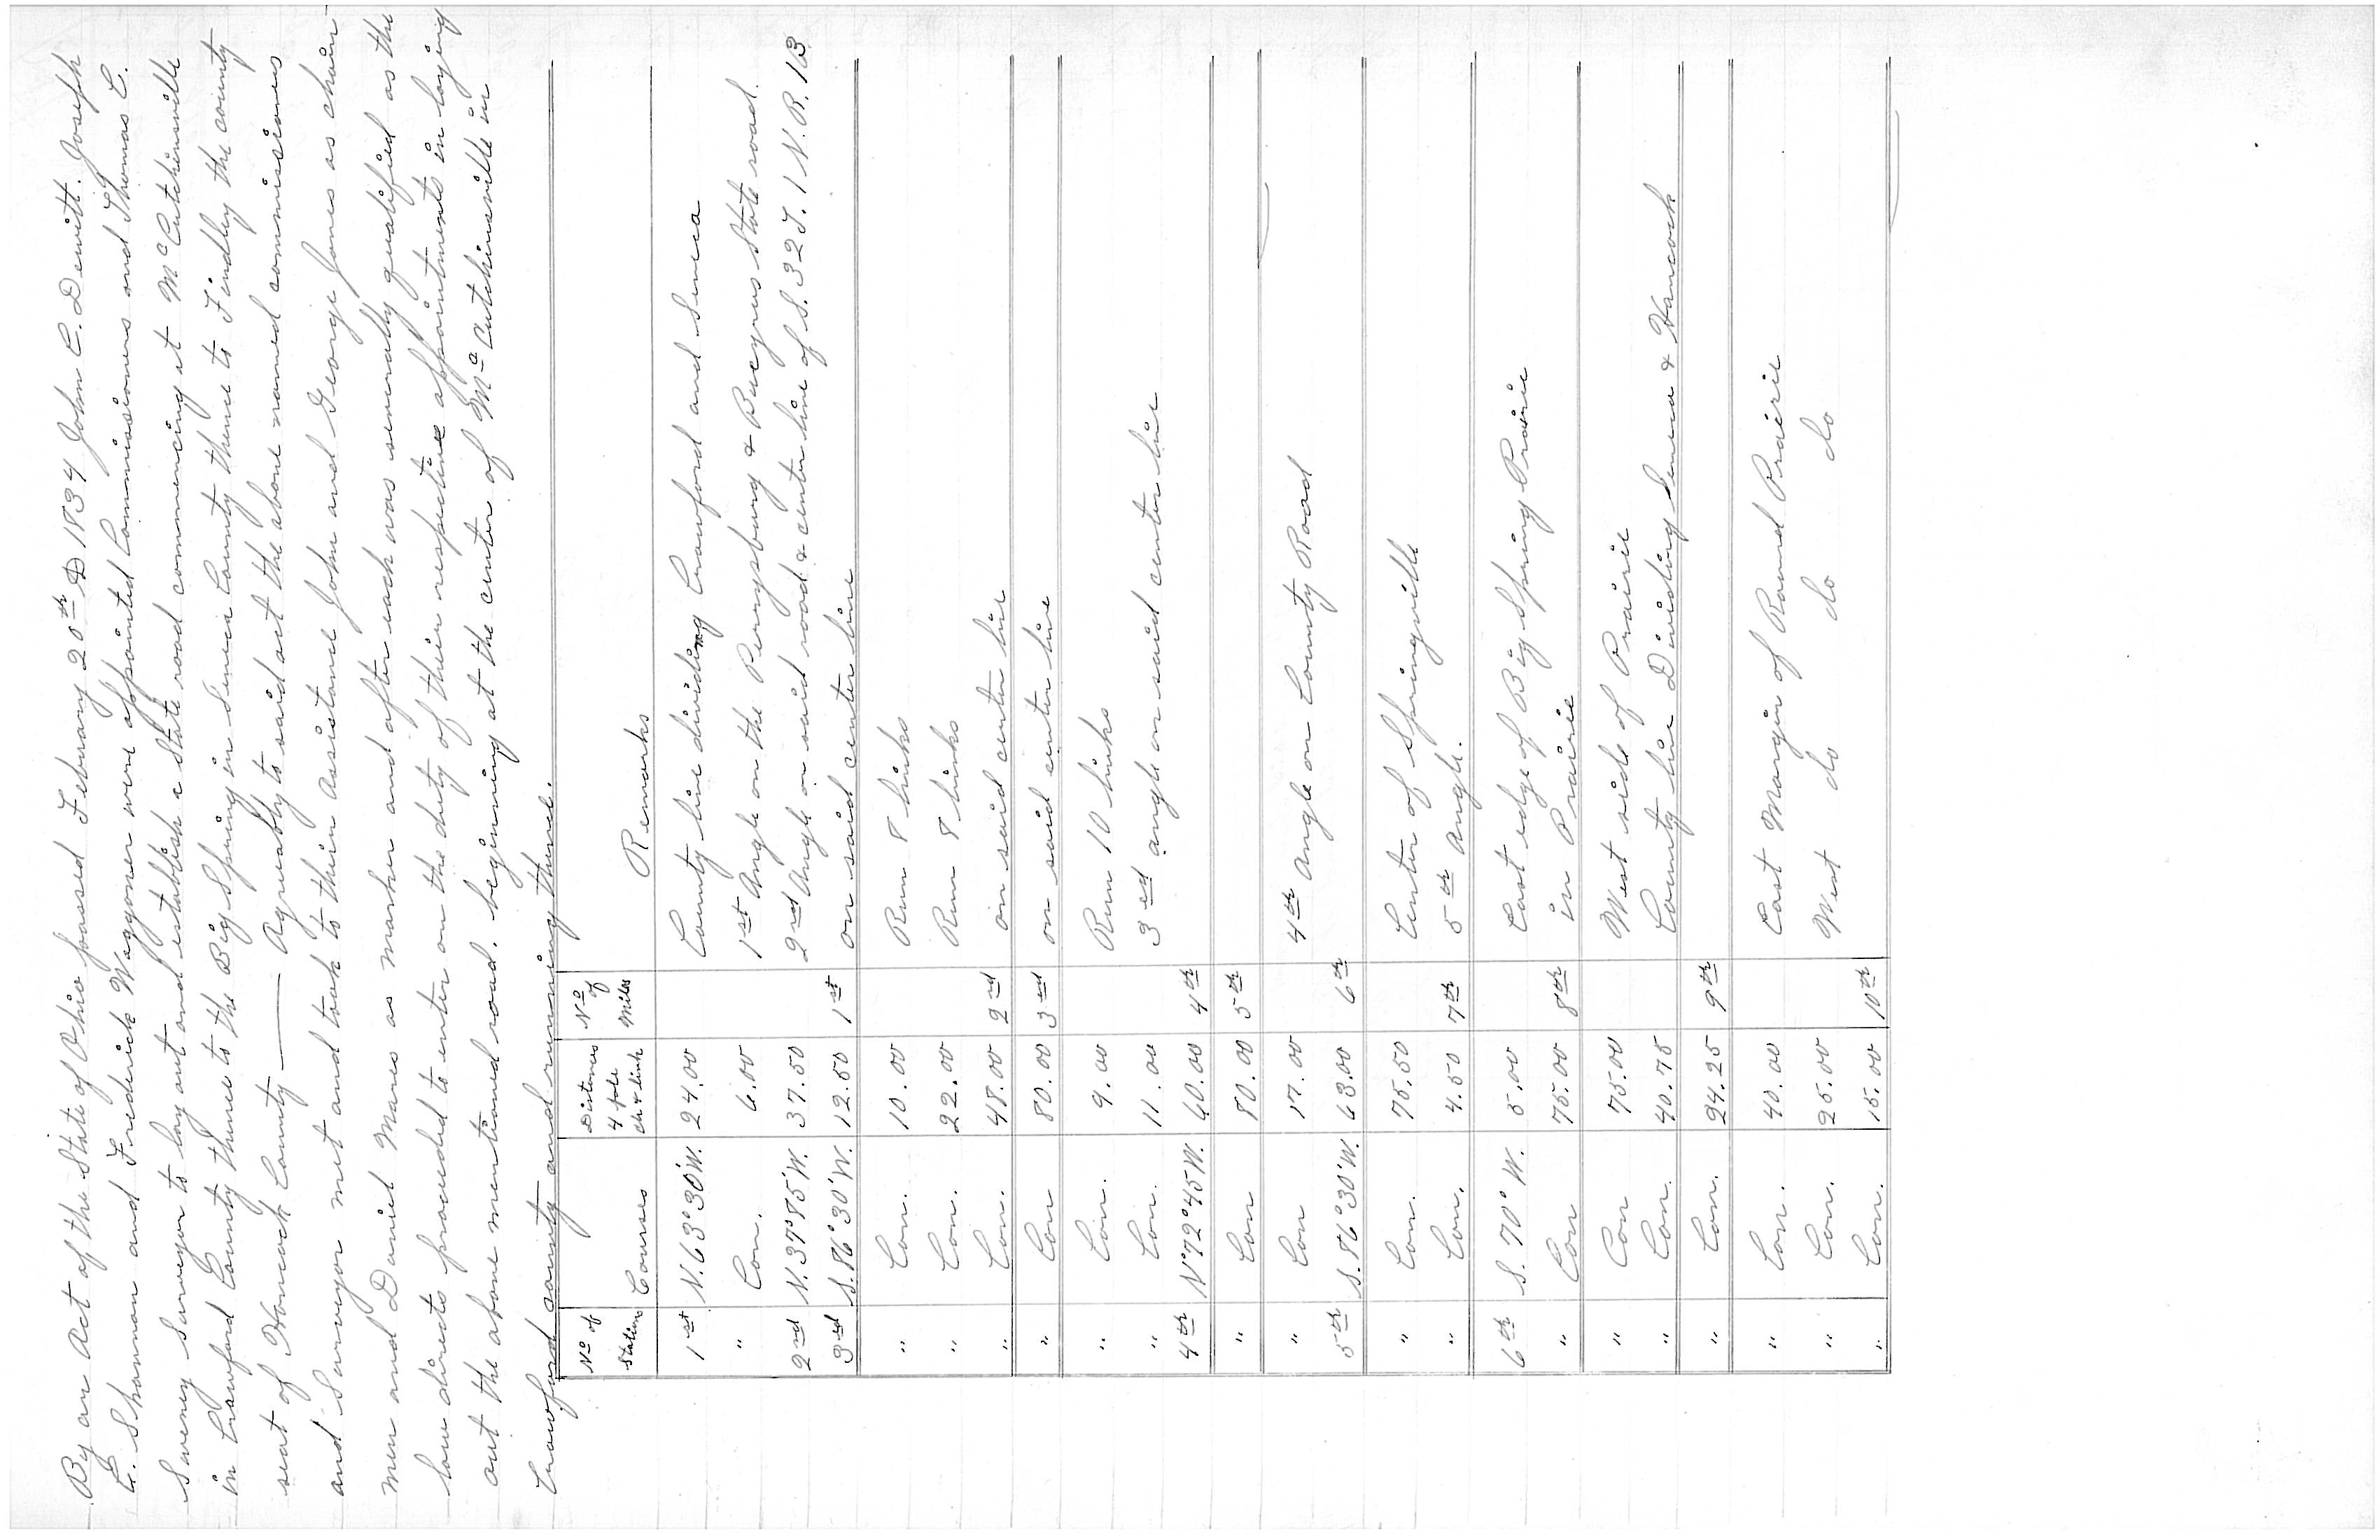 By an Act of the State of Ohio passed February 20th D 1834 John C. Dewitt. Joseph
E. Shannon and Frederick Waggoner were appointed Commissioners and Thomas C.
Sweney Surveyor to lay out and establish a State road commencing at McCutchinsville
in Crawford County thence to the Big Spring in Seneca County thence to Findley the county
seat of Hancock County —— Agreeably to said act the above named commissioners
and Surveyor met and took to their assistance John and George Jones as chain-
men and Daniel Mares as marker and after each was severally qualified as the
law directs proceeded to enter on the duty of their respective appointments in laying
out the above mentioned road. beginning at the center of McCutchinsville in
Crawford county and running thence.
No of Stations Courses Distances 4 pole ch & link No of Miles Remarks
1st N. 63° 30' W. 24.00 County line dividing Crawford and Seneca
" Con. 6.00 1st Angle on the Perrysburg & Bucyrus State road.
2nd N. 37° 85' W. 37.50 2nd Angle on said road & center line of S. 32 T. 1 N. R. 13
3rd S. 86° 30' W. 12.50 1st on said center line
" Con. 10.00 Run 8 links
" Con. 22.00 Run 8 links
" Con. 48.00 2nd on said center line
" Con 80.00 3rd on said center line
" Con. 9.00 Run 10 links
" Con. 11.00 3rd angle on said center line
4th N 72° 45 W. 60.00 4th
" Con 80.00 5th
" Con 17.00 4th Angle on County Road
5th S. 86° 30' W. 63.00 6th
" Con. 75.50 Center of Springville
" Con. 4.50 7th 5th Angle.
6th S. 70° W. 5.00 East edge of Big Spring Prairie
" Con 75.00 8th in Prairie
" Con 75.00 West side of Prairie
" Con. 40.75 County line Dividing Seneca & Hancock
" Con. 24.25 9th
" Con. 40.00 East Margin of Round Prairie
" Con. 25.00 West do do do
" Con. 15.00 10th